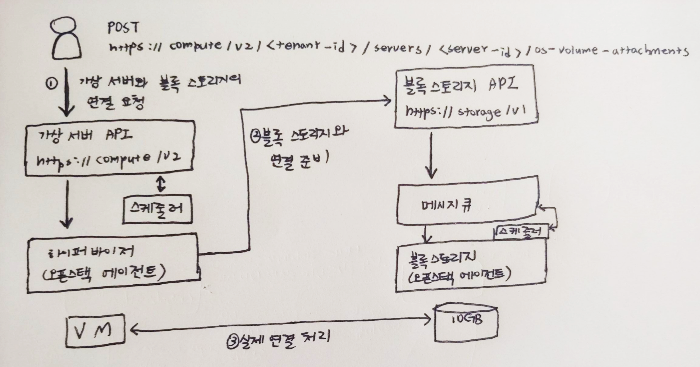 POST
https:// compute/v2/<tenant-id>/servers/<server-id>/os-volume-attachments
① 가상 서버와 블록 스토리지의
연결 요청
가상 서버 API
https://compute/v2
스케줄러
하이퍼바이저
(오픈스택 에이전트)
②블록 스토리지와
연결 준비
블록스토리지 API
https://storage/v1
메시지큐
스케줄러
블록스토리지
(오픈스택 에이전트)
VM
③실제 연결 처리
10GB